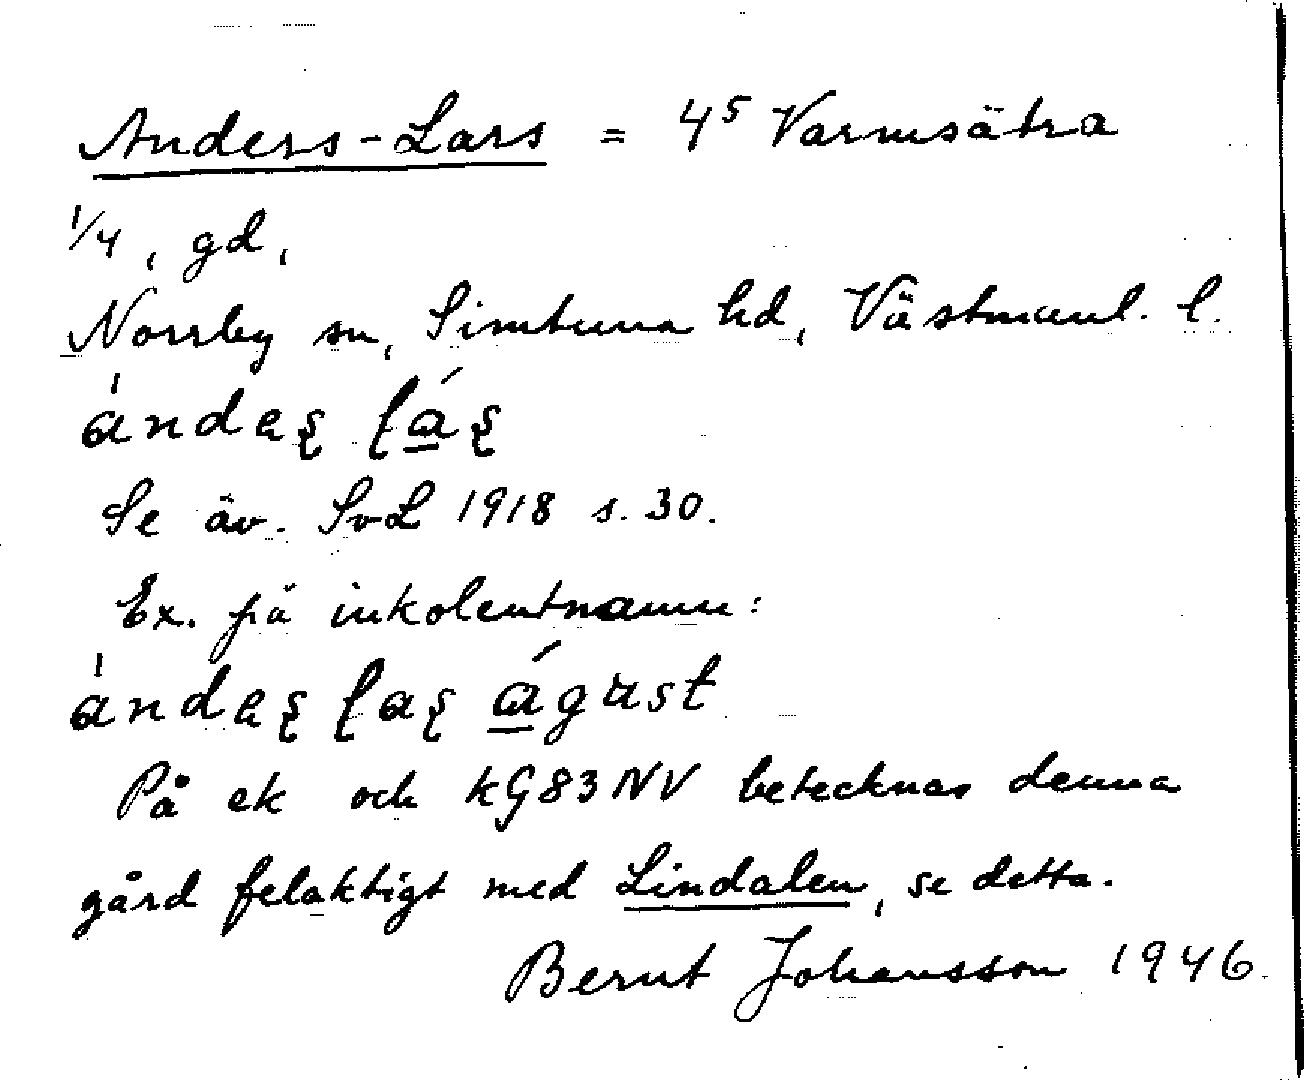 Anders-Lars = 4⁵ Varmsätra
1/4, gd,
Norrby sn, Simtuna hd, Västmanl. l.
ándeʂ ɭá̲ʂ
Se äv. SvL 1918 s. 30.
Ex. på inkolentnamn:
ándeʂ ɭaʂ á̲gust
På ek och kG83NV betecknas denna
gård felaktigt med Lindalen, se detta.
Bernt Johansson 1946